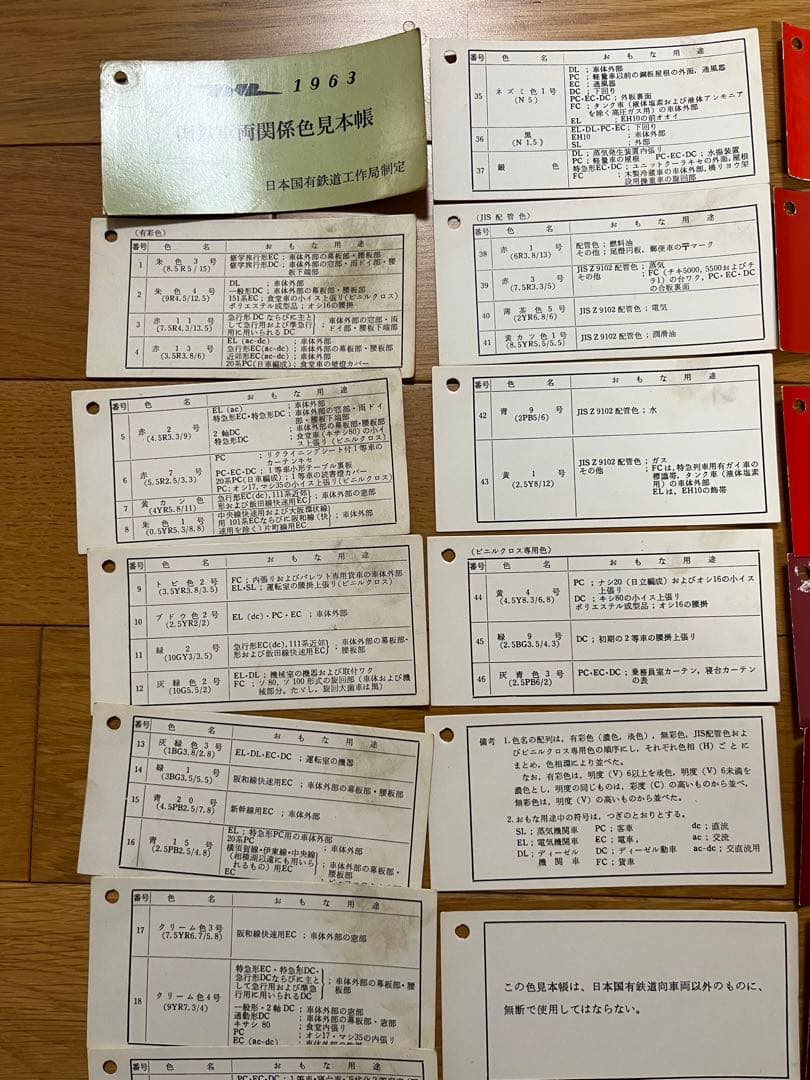 1963
車両関係色見本帳
日本国有鉄道工作局制定
(有彩色)
番号 色名 おもな用途
1 朱色3号 (8.5R5/15) 修学旅行形EC;車体外部の幕板部・腰板部
修学旅行形DC;車体外部の窓部・雨ドイ部・腰板下端部
2 朱色4号 (9R4.5/12.5) DL;車体外部
一般形DC;車体外部の幕板部・腰板部
151系EC;食堂車の小イス上張り(ビニルクロス)
ポリエステル成型品;オシ16の腰掛
3 赤11号 (7.5R4.3/13.5) 急行形DCならびに主として急行用および準急行用に用いられるDC};車体外部の窓部・雨ドイ部・腰板下端部
4 赤13号 (3.5R3.8/6) EL (ac-dc);車体外部
急行形EC(ac-dc);車体外部の幕板部・腰板部
近郊形EC(ac-dc);車体外部
20系PC(日車編成);食堂車の壁燈カバー
番号 色名 おもな用途
5 赤2号 (4.5R3.3/9) EL (ac);車体外部
特急形EC・特急形DC;車体外部の窓部・雨ドイ部・腰板下端部
2軸DC;車体外部の幕板部・腰板部
特急形DC;食堂車(キサシ80)の小イス上張り(ビニルクロス)
6 赤7号 (5.5R2.5/3.3) PC;リクライニングシート付1等車のカーテンキセ
PC・EC・DC;1等車小形テーブル裏板
20系PC(日車編成);1等車の読書燈カバー
PC;オシ17,マシ35の小イス上張り(ビニルクロス)
7 黄カン色 (4YR5.8/11) 急行形EC(dc),111系近郊形および飯田線快速用EC};車体外部の窓部
8 朱色1号 (0.5YR5.3/8.8) 中央線快速用および大阪環状線用101系ECならびに阪和線(快速用を除く)片町線用EC};車体外部
9 トビ色2号 (3.5YR3.8/3.5) FC;内張りおよびパレット専用貨車の車体外部
EL・SL;運転室の腰掛上張り(ビニルクロス)
10 ブドウ色2号 (2.5YR2/2) EL (dc)・PC・EC;車体外部
11 緑2号 (10GY3/3.5) 急行形EC(dc),111系近郊形および飯田線快速用EC};車体外部の幕板部・腰板部
12 灰緑色2号 (10G5.5/2) EL・DL;機械室の機器および取付ワク
FC;ソ80,ソ100形式の旋回部(車体および機械部分,たゞし,旋回大歯車は黒)
番号 色名 おもな用途
13 灰緑色3号 (1BG3.8/2.8) EL・DL・EC・DC;運転室の機器
14 緑1号 (3BG3.5/5.5) 阪和線快速用EC;車体外部の幕板部・腰板部
15 青20号 (4.5PB2.5/7.8) 新幹線用EC;車体外部
16 青15号 (2.5PB2.5/4.8) EL;特急形PC用の車体外部
20系PC
横須賀線・伊東線・中央線(相模湖以遠にも用いられるもの)用EC};車体外部の幕板部・腰板部
EC
番号 色名 おもな用途
17 クリーム色3号 (7.5YR6.7/5.8) 阪和線快速用EC;車体外部の窓部
18 クリーム色4号 (9YR7.3/4) 特急形EC・特急形DC・急行形DCならびに主として急行用および準急行用に用いられるDC};車体外部の幕板部・腰板部
一般形・2軸DC;車体外部の窓部
通勤形DC;車体外部の幕板部・窓部
キサシ80;食堂内張り
PC;オシ17・マシ35の内張り
EC (ac-dc)
番号 色名 おもな用途
番号 色名 おもな用途
35 ネズミ色1号 (N5) DL;車体外部
PC;軽量車以前の鋼板屋根の外面,通風器
EC;通風器
DC;下回り
PC・EC・DC;外板裏面
FC;タンク車(液体塩素および液体アンモニアを除く高圧ガス用)の車体外部
EL;EH10の前オオイ
36 黒 (N1.5) EL・DL・PC・EC;下回り
EH10;車体外部
SL;外部
37 銀色 DL;蒸気発生装置内張り
PC;軽量車の屋根 PC・EC・DC;水揚装置
特急形EC・DC;ユニットクーラキセの外面,屋根
FC;木製冷蔵車の車体外部,橋リョウ架設用操重車の旋回部
(JIS配管色)
番号 色名 おもな用途
38 赤1号 (6R3.8/13) 配管色;燃料油
その他;尾燈円板,郵便車の〒マーク
39 赤3号 (7.5R3.3/5) JIS Z 9102 配管色;蒸気
その他;FC(チキ5000,5500およびチラ1)の台ワク,PC・EC・DCの合板裏面
40 薄茶色5号 (2YR6.8/6) JIS Z 9102 配管色;電気
41 黄カツ色1号 (8.5YR5.5/5.5) JIS Z 9102 配管色;潤滑油
番号 色名 おもな用途
42 青9号 (2PB5/6) JIS Z 9102 配管色;水
43 黄1号 (2.5Y8/12) JIS Z 9102 配管色;ガス
その他;FCは,特急列車用有ガイ車の標識帯,タンク車(液体塩素用)の車体外部
ELは,EH10の飾帯
(ビニルクロス専用色)
番号 色名 おもな用途
44 黄4号 (4.5Y8.3/6.8) PC;ナシ20(日立編成)およびオシ16の小イス上張り
DC;キシ80の小イス上張り
ポリエステル成型品;オシ16の腰掛
45 緑9号 (2.5BG3.5/4.3) DC;初期の2等車の腰掛上張り
46 灰青色3号 (2.5PB6/2) PC・EC・DC;乗務員室カーテン,寝台カーテンの表
備考 1.色名の配列は,有彩色(濃色,淡色),無彩色,JIS配管色およ
びビニルクロス専用色の順序にし,それぞれ色相(H)ごとに
まとめ,色相環により並べた。
なお,有彩色は,明度(V)6以上を淡色,明度(V)6未満を
濃色とし,明度の同じものは,彩度(C)の高いものから並べ,
無彩色は,明度(V)の高いものから並べた。
2.おもな用途中の符号は,つぎのとおりとする。
SL;蒸気機関車 PC;客車 dc;直流
EL;電気機関車 EC;電車, ac;交流
DL;ディーゼル機関車 DC;ディーゼル動車 ac-dc;交直流用
FC;貨車
この色見本帳は、日本国有鉄道向車両以外のものに、
無断で使用してはならない。